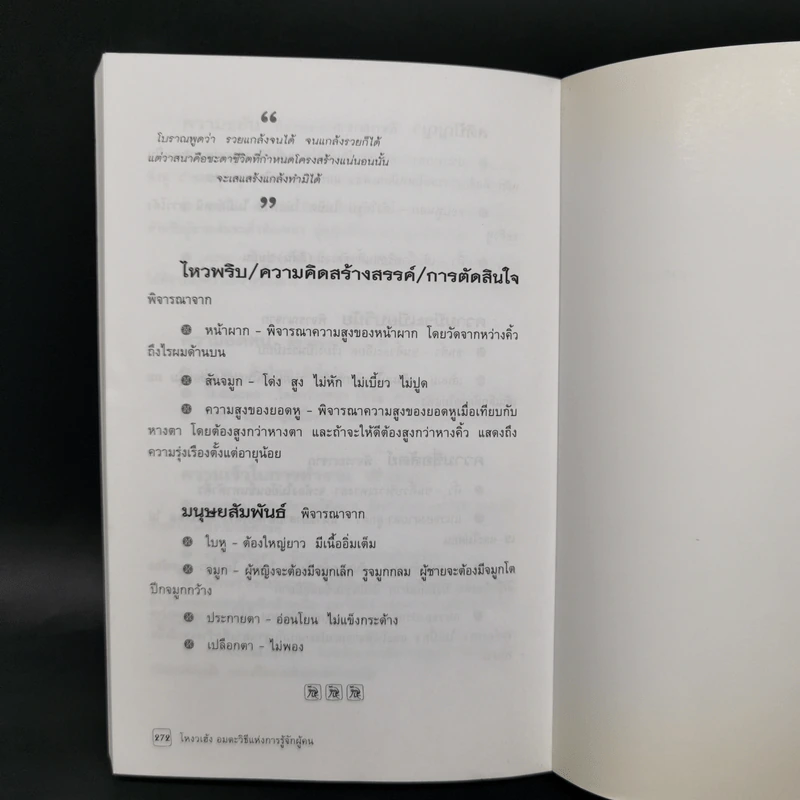 “
โบราณพูดว่า รวยแกล้งจนได้ จนแกล้งรวยก็ได้
แต่วาสนาคือชะตาชีวิตที่กำหนดโครงสร้างแน่นอนนั้น
จะเสแสร้งแกล้งทำมิได้
”
ไหวพริบ/ความคิดสร้างสรรค์/การตัดสินใจ
พิจารณาจาก
หน้าผาก - พิจารณาความสูงของหน้าผาก โดยวัดจากหว่างคิ้ว
ถึงไรผมด้านบน
สันจมูก - โด่ง สูง ไม่หัก ไม่เบี้ยว ไม่ปูด
ความสูงของยอดหู - พิจารณาความสูงของยอดหูเมื่อเทียบกับ
หางตา โดยต้องสูงกว่าหางตา และถ้าจะให้ดีต้องสูงกว่าหางคิ้ว แสดงถึง
ความรุ่งเรืองตั้งแต่อายุน้อย
มนุษยสัมพันธ์ พิจารณาจาก
ใบหู - ต้องใหญ่ยาว มีเนื้ออิ่มเต็ม
จมูก - ผู้หญิงจะต้องมีจมูกเล็ก รูจมูกกลม ผู้ชายจะต้องมีจมูกโต
ปีกจมูกกว้าง
ประกายตา - อ่อนโยน ไม่แข็งกระด้าง
เปลือกตา - ไม่พอง
272 โหงวเฮ้ง อมตะวิธีแห่งการรู้จักผู้คน